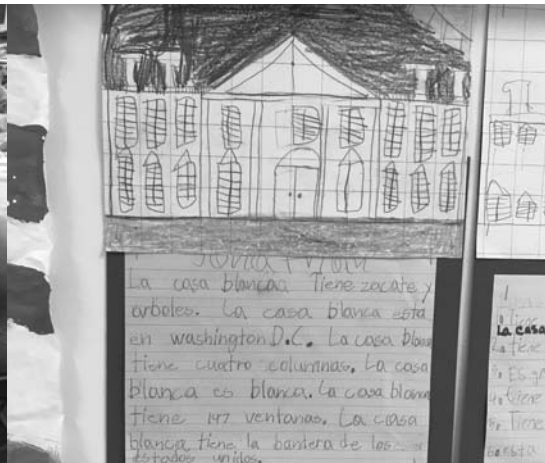 La casa blancaa Tiene zacate y
arboles. La casa blanca está
en washington D.C. La casa blanca
tiene cuatro columnas. La casa
blanca es blanca. La casa blanca
tiene 147 ventanas. La casa
blanca tiene la bandera de los
estados unidos.
La casa
tiene
Es
tiene
Tiene